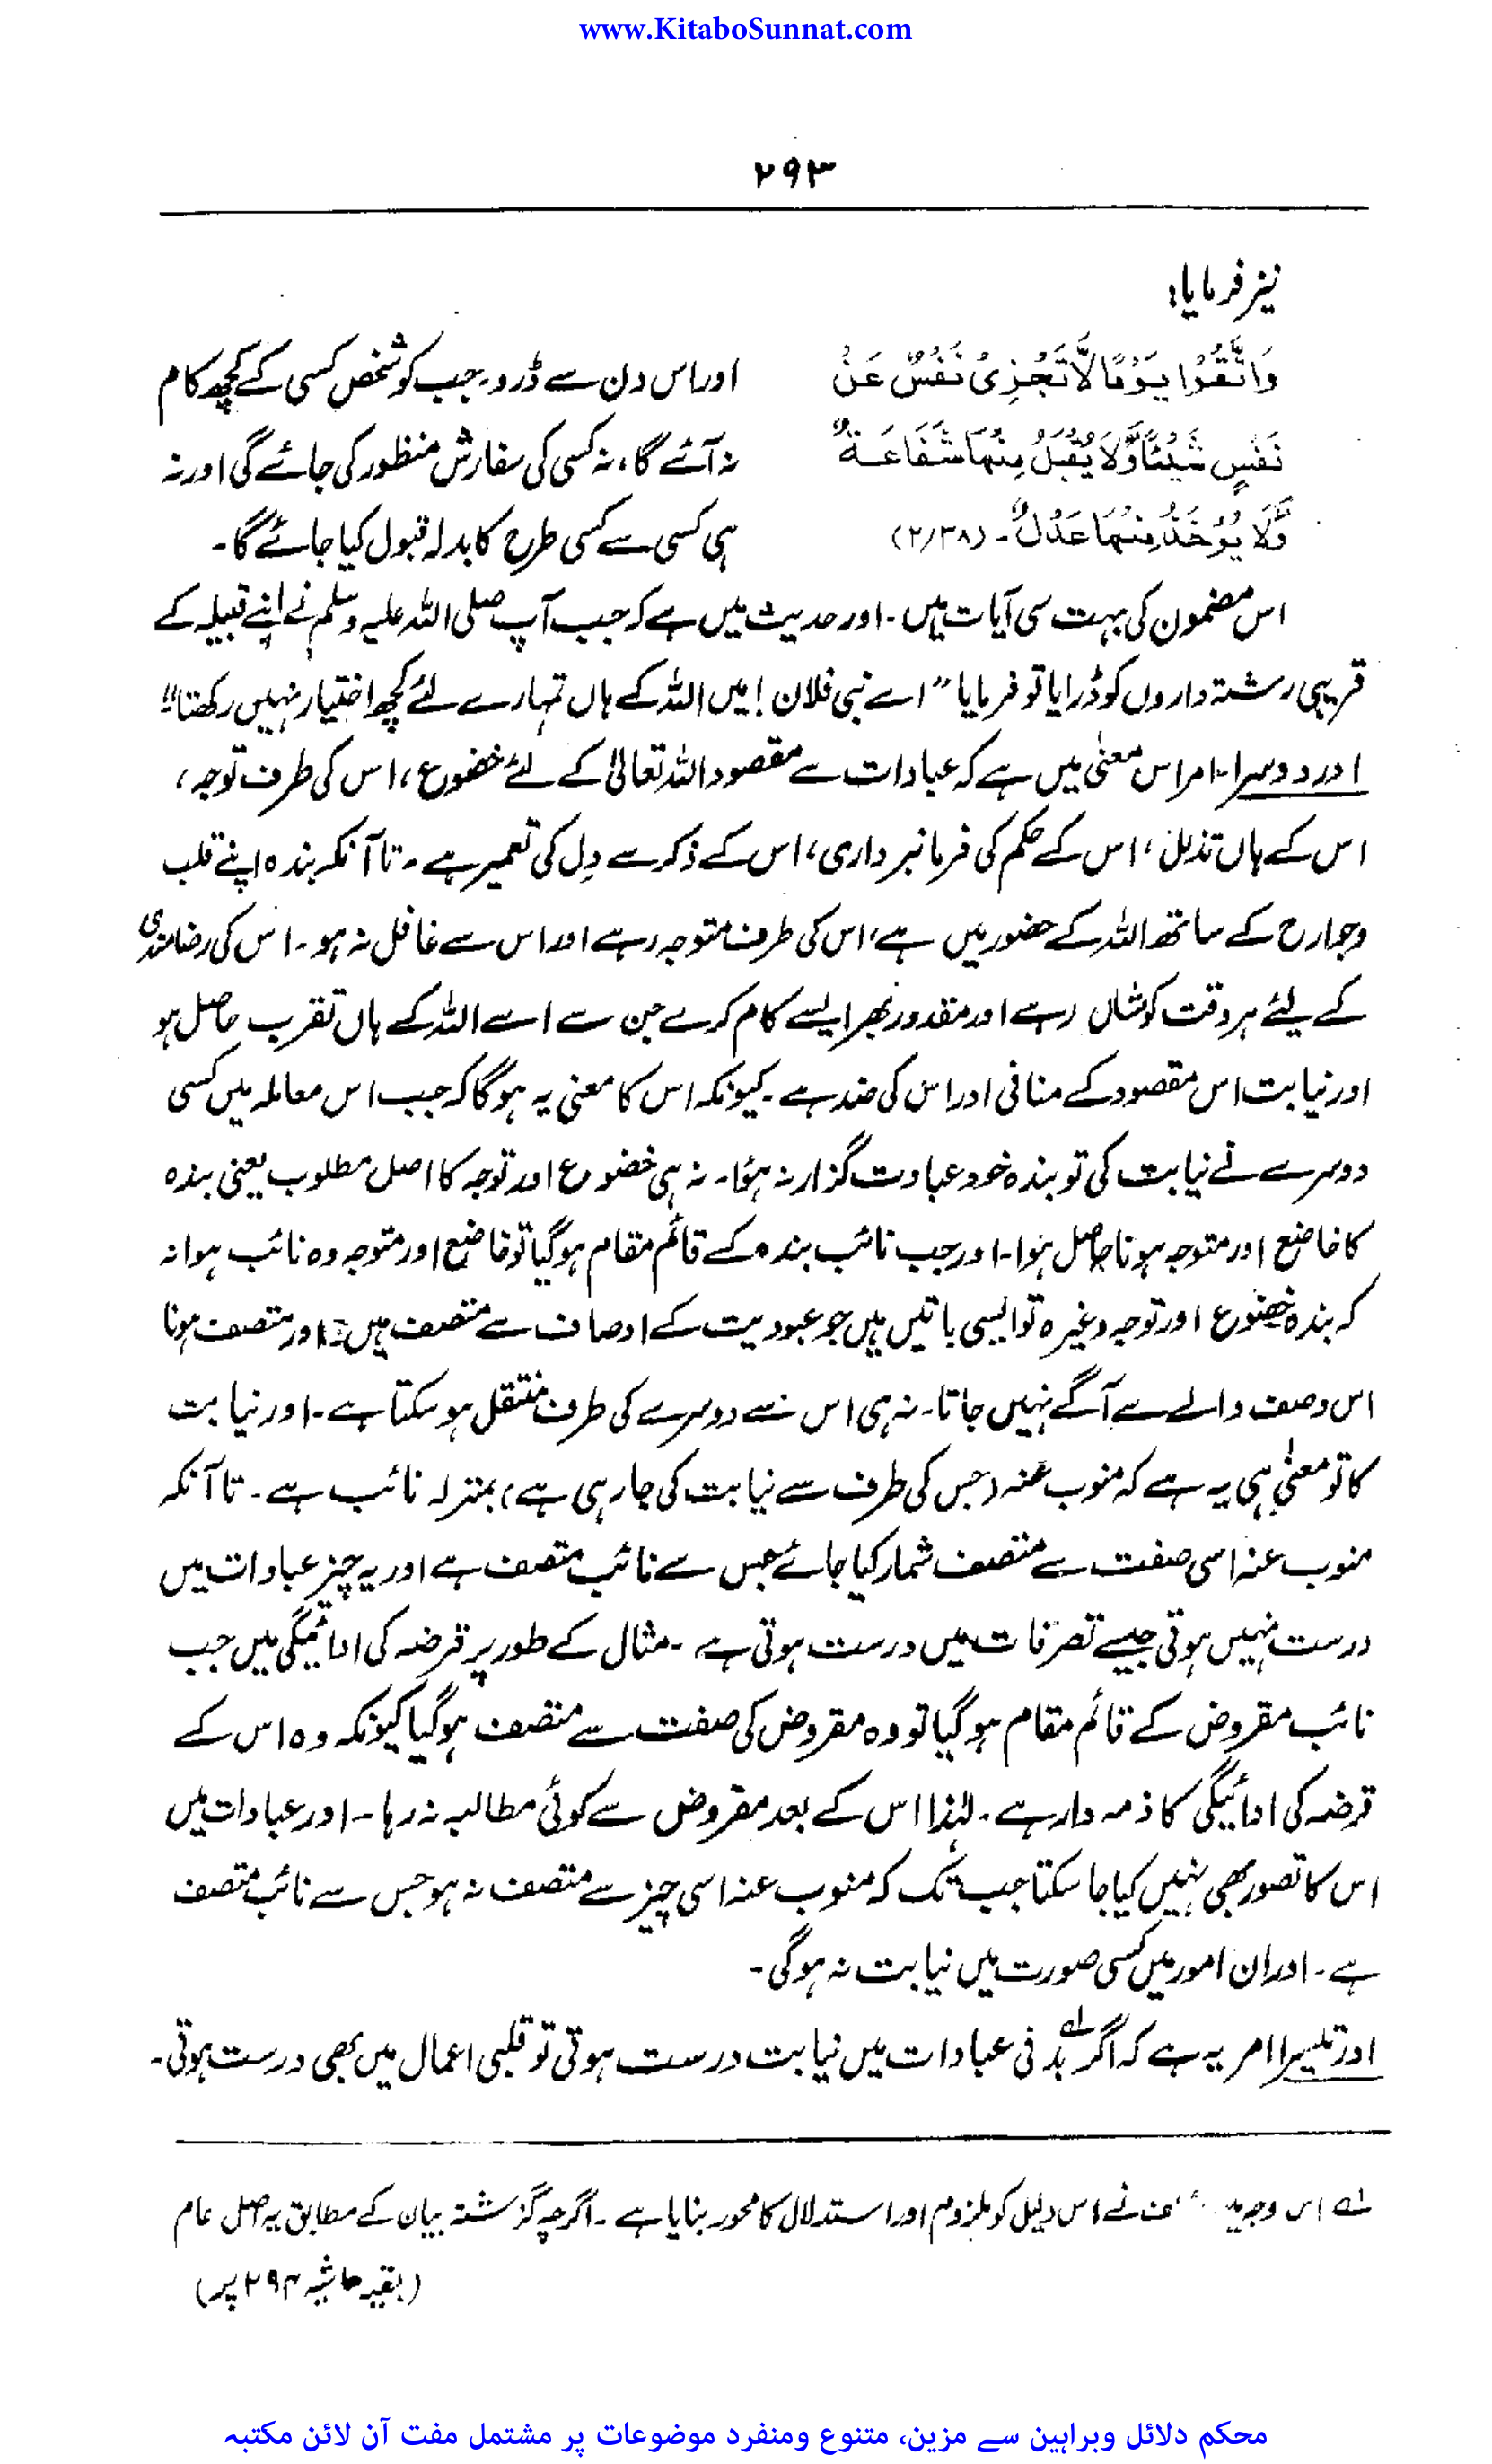 www.KitaboSunnat.com
۲۹۳
نیز فرمایا:
وَاتَّقُوْا يَوْمًا لَّا تَجْزِىْ نَفْسٌ عَنْ
نَفْسٍ شَيْئًا وَّلَا يُقْبَلُ مِنْهَا شَفَاعَةٌ
وَّلَا يُؤْخَذُ مِنْهَا عَدْلٌ۔ (۲/۳۸)
اور اس دن سے ڈرو۔ جب کو شخص کسی کے کچھ کام
نہ آئے گا، نہ کسی کی سفارش منظور کی جائے گی اور نہ
ہی کسی سے کسی طرح کا بدلہ قبول کیا جائے گا۔
اس مضمون کی بہت سی آیات ہیں۔ اور حدیث میں ہے کہ جب آپ صلی اللہ علیہ وسلم نے اپنے قبیلہ کے
قریبی رشتہ داروں کو ڈرایا تو فرمایا ”اے بنی فلان! میں اللہ کے ہاں تمہارے لئے کچھ اختیار نہیں رکھتا“
اور دوسرا امر اس معنیٰ میں ہے کہ عبادات سے مقصود اللہ تعالیٰ کے لئے خضوع، اس کی طرف توجہ،
اس کے ہاں تذلل، اس کے حکم کی فرمانبرداری، اس کے ذکر سے دِل کی تعمیر ہے۔ تا آنکہ بندہ اپنے قلب
وجوارح کے ساتھ اللہ کے حضور میں ہے، اس کی طرف متوجہ رہے اور اس سے غافل نہ ہو۔ اس کی رضامندی
کے لیئے ہر وقت کوشاں رہے اور مقدور بھر ایسے کام کرے جن سے اسے اللہ کے ہاں تقرب حاصل ہو
اور نیابت اس مقصود کے منافی اور اس کی ضد ہے۔ کیونکہ اس کا معنی یہ ہوگا کہ جب اس معاملہ میں کسی
دوسرے نے نیابت کی تو بندہ خود عبادت گزار نہ ہؤا۔ نہ ہی خضوع اور توجہ کا اصل مطلوب یعنی بندہ
کا خاضع اور متوجہ ہونا حاصل ہؤا۔ اور جب نائب بندہ کے قائم مقام ہوگیا تو خاضع اور متوجہ وہ نائب ہوا نہ
کہ بندہ خضوع اور توجہ وغیرہ تو ایسی باتیں ہیں جو عبودیت کے اوصاف سے متصف ہیں۔ اور متصف ہونا
اس وصف والے سے آگے نہیں جاتا۔ نہ ہی اس سے دوسرے کی طرف منتقل ہو سکتا ہے۔ اور نیابت
کا تو معنیٰ ہی یہ ہے کہ منوب عنہ (جس کی طرف سے نیابت کی جا رہی ہے) بمنزلہ نائب ہے۔ تا آنکہ
منوب عنہ اسی صفت سے متصف شمار کیا جائے جس سے نائب متصف ہے اور یہ چیز عبادات میں
درست نہیں ہوتی جیسے تصرّفات میں درست ہوتی ہے۔ مثال کے طور پر قرضہ کی ادائیگی میں جب
نائب مقروض کے قائم مقام ہو گیا تو وہ مقروض کی صفت سے متصف ہو گیا کیونکہ وہ اس کے
قرضہ کی ادائیگی کا ذمہ دار ہے۔ لہٰذا اس کے بعد مقروض سے کوئی مطالبہ نہ رہا۔ اور عبادات میں
اس کا تصور بھی نہیں کیا جا سکتا جب تک کہ منوب عنہ اسی چیز سے متصف نہ ہو جس سے نائب متصف
ہے۔ اور ان امور میں کسی صورت میں نیابت نہ ہوگی۔
اور تیسرا امر یہ ہے کہ اگر بدنی ؎۱ عبادات میں نیابت درست ہوتی تو قلبی اعمال میں بھی درست ہوتی۔
؎۱ اس وجہ نے اس دلیل کو ملزوم اور استدلال کا محور بنایا ہے۔ اگرچہ گزشتہ بیان کے مطابق یہ اصل عام
(بقیہ حاشیہ ۲۹۴ پر)
محکم دلائل وبراہین سے مزین، متنوع ومنفرد موضوعات پر مشتمل مفت آن لائن مکتبہ